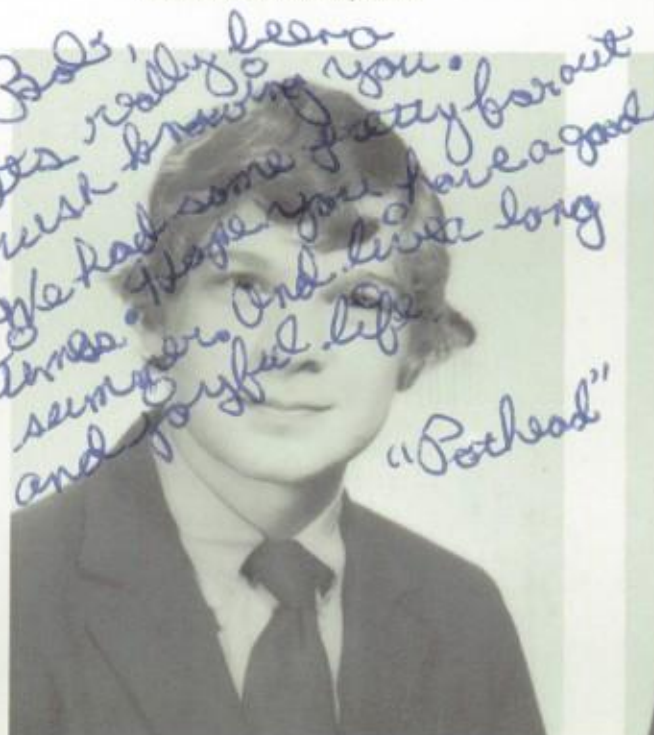 Bob,
its really been a
rush knowing you.
We had some pretty far out
times. Hope you have a good
summer. And live a long
and joyful life.
"Pothead"